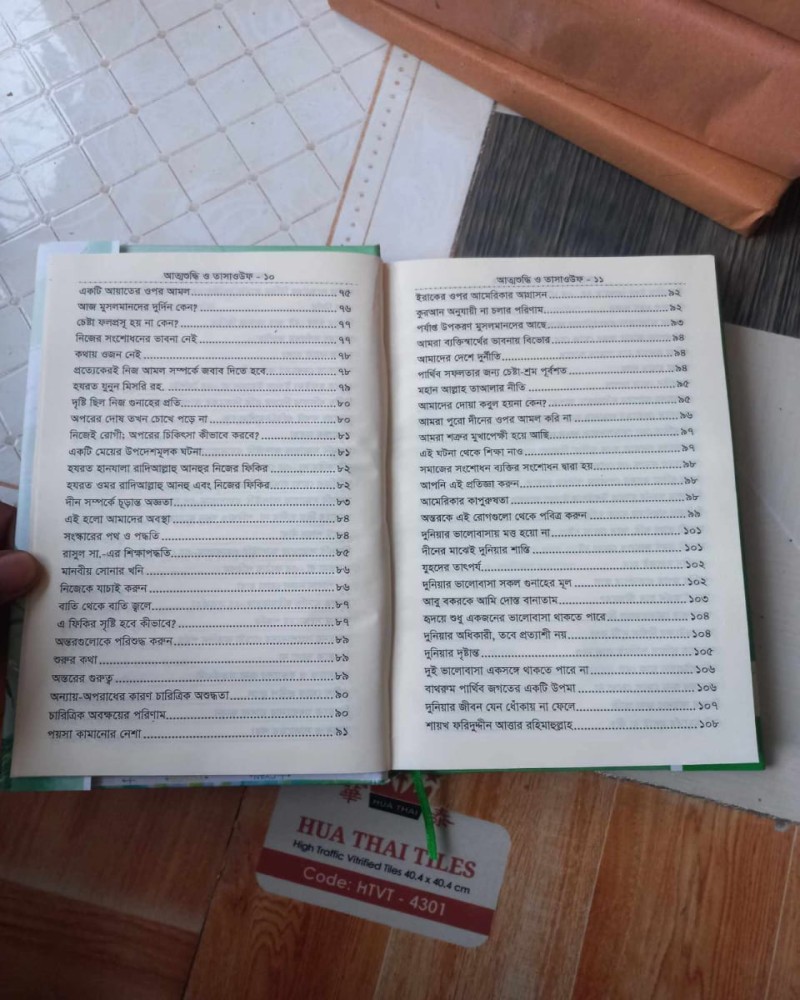 আত্মশুদ্ধি ও তাসাওউফ - ১০
একটি আয়াতের ওপর আমল........৭৫
আজ মুসলমানদের দুর্দিন কেন?........৭৬
চেষ্টা ফলপ্রসূ হয় না কেন?........৭৭
নিজের সংশোধনের ভাবনা নেই........৭৭
কথায় ওজন নেই........৭৮
প্রত্যেকেরই নিজ আমল সম্পর্কে জবাব দিতে হবে........৭৮
হযরত যুনুন মিসরি রহ. ........৭৯
দৃষ্টি ছিল নিজ গুনাহের প্রতি........৮০
অপরের দোষ তখন চোখে পড়ে না........৮০
নিজেই রোগী; অপরের চিকিৎসা কীভাবে করবে?........৮১
একটি মেয়ের উপদেশমূলক ঘটনা........৮১
হযরত হানযালা রাদিআল্লাহু আনহুর নিজের ফিকির........৮২
হযরত ওমর রাদিআল্লাহু আনহু এবং নিজের ফিকির........৮২
দীন সম্পর্কে চূড়ান্ত অজ্ঞতা........৮৩
এই হলো আমাদের অবস্থা........৮৪
সংস্কারের পথ ও পদ্ধতি........৮৪
রাসুল সা.-এর শিক্ষাপদ্ধতি........৮৫
মানবীয় সোনার খনি........৮৬
নিজেকে যাচাই করুন........৮৬
বাতি থেকে বাতি জ্বলে........৮৭
এ ফিকির সৃষ্টি হবে কীভাবে?........৮৭
অন্তরগুলোকে পরিশুদ্ধ করুন........৮৯
শুরুর কথা........৮৯
অন্তরের গুরুত্ব........৮৯
অন্যায়-অপরাধের কারণ চারিত্রিক অশুদ্ধতা........৯০
চারিত্রিক অবক্ষয়ের পরিণাম........৯০
পয়সা কামানোর নেশা........৯১
আত্মশুদ্ধি ও তাসাওউফ - ১১
ইরাকের ওপর আমেরিকার আগ্রাসন........৯২
কুরআন অনুযায়ী না চলার পরিণাম........৯২
পর্যাপ্ত উপকরণ মুসলমানদের আছে........৯৩
আমরা ব্যক্তিস্বার্থের ভাবনায় বিভোর........৯৪
আমাদের দেশে দুর্নীতি........৯৪
পার্থিব সফলতার জন্য চেষ্টা-শ্রম পূর্বশর্ত........৯৪
মহান আল্লাহ তাআলার নীতি........৯৫
আমাদের দোয়া কবুল হয়না কেন?........৯৫
আমরা পুরো দীনের ওপর আমল করি না........৯৬
আমরা শত্রুর মুখাপেক্ষী হয়ে আছি........৯৭
এই ঘটনা থেকে শিক্ষা নাও........৯৭
সমাজের সংশোধন ব্যক্তির সংশোধন দ্বারা হয়........৯৮
আপনি এই প্রতিজ্ঞা করুন........৯৮
আমেরিকার কাপুরুষতা........৯৮
অন্তরকে এই রোগগুলো থেকে পবিত্র করুন........৯৯
দুনিয়ার ভালোবাসায় মত্ত হয়ো না........১০১
দীনের মাঝেই দুনিয়ার শান্তি........১০১
যুহদের তাৎপর্য........১০২
দুনিয়ার ভালোবাসা সকল গুনাহের মূল........১০২
আবু বকরকে আমি দোস্ত বানাতাম........১০৩
হৃদয়ে শুধু একজনের ভালোবাসা থাকতে পারে........১০৪
দুনিয়ার অধিকারী, তবে প্রত্যাশী নয়........১০৪
দুনিয়ার দৃষ্টান্ত........১০৫
দুই ভালোবাসা একসঙ্গে থাকতে পারে না........১০৬
বাথরুম পার্থিব জগতের একটি উপমা........১০৬
দুনিয়ার জীবন যেন ধোঁকায় না ফেলে........১০৭
শায়খ ফরিদুদ্দীন আত্তার রহিমাহুল্লাহ........১০৮
華 泰
HUA THAI
HUA THAI TILES
High Traffic Vitrified Tiles 40.4 x 40.4 cm
Code: HTVT - 4301